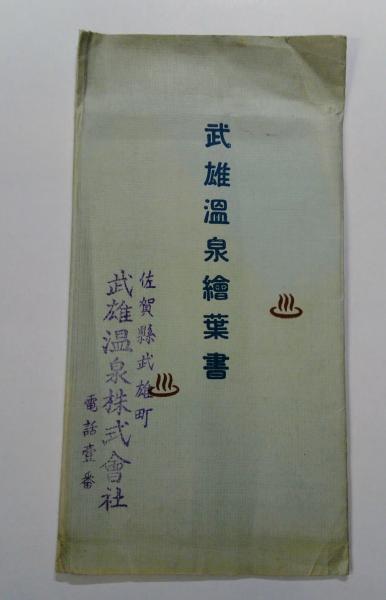 武雄溫泉繪葉書
佐賀縣武雄町
武雄溫泉株式會社
電話壹番